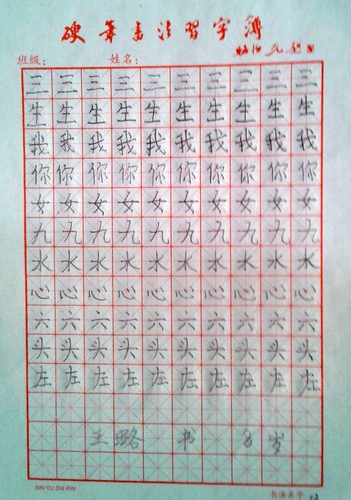 硬筆書法習字簿
班级： 姓名：
三三三三三三三三三三
生生生生生生生生生生
我我我我我我我我我我
你你你你你你你你你你
女女女女女女女女女女
九九九九九九九九九九
水水水水水水水水水水
心心心心心心心心心心
六六六六六六六六六六
头头头头头头头头头头
左左左左左左左左左左
王璐 书 8岁
XIN YU ZHI PIN